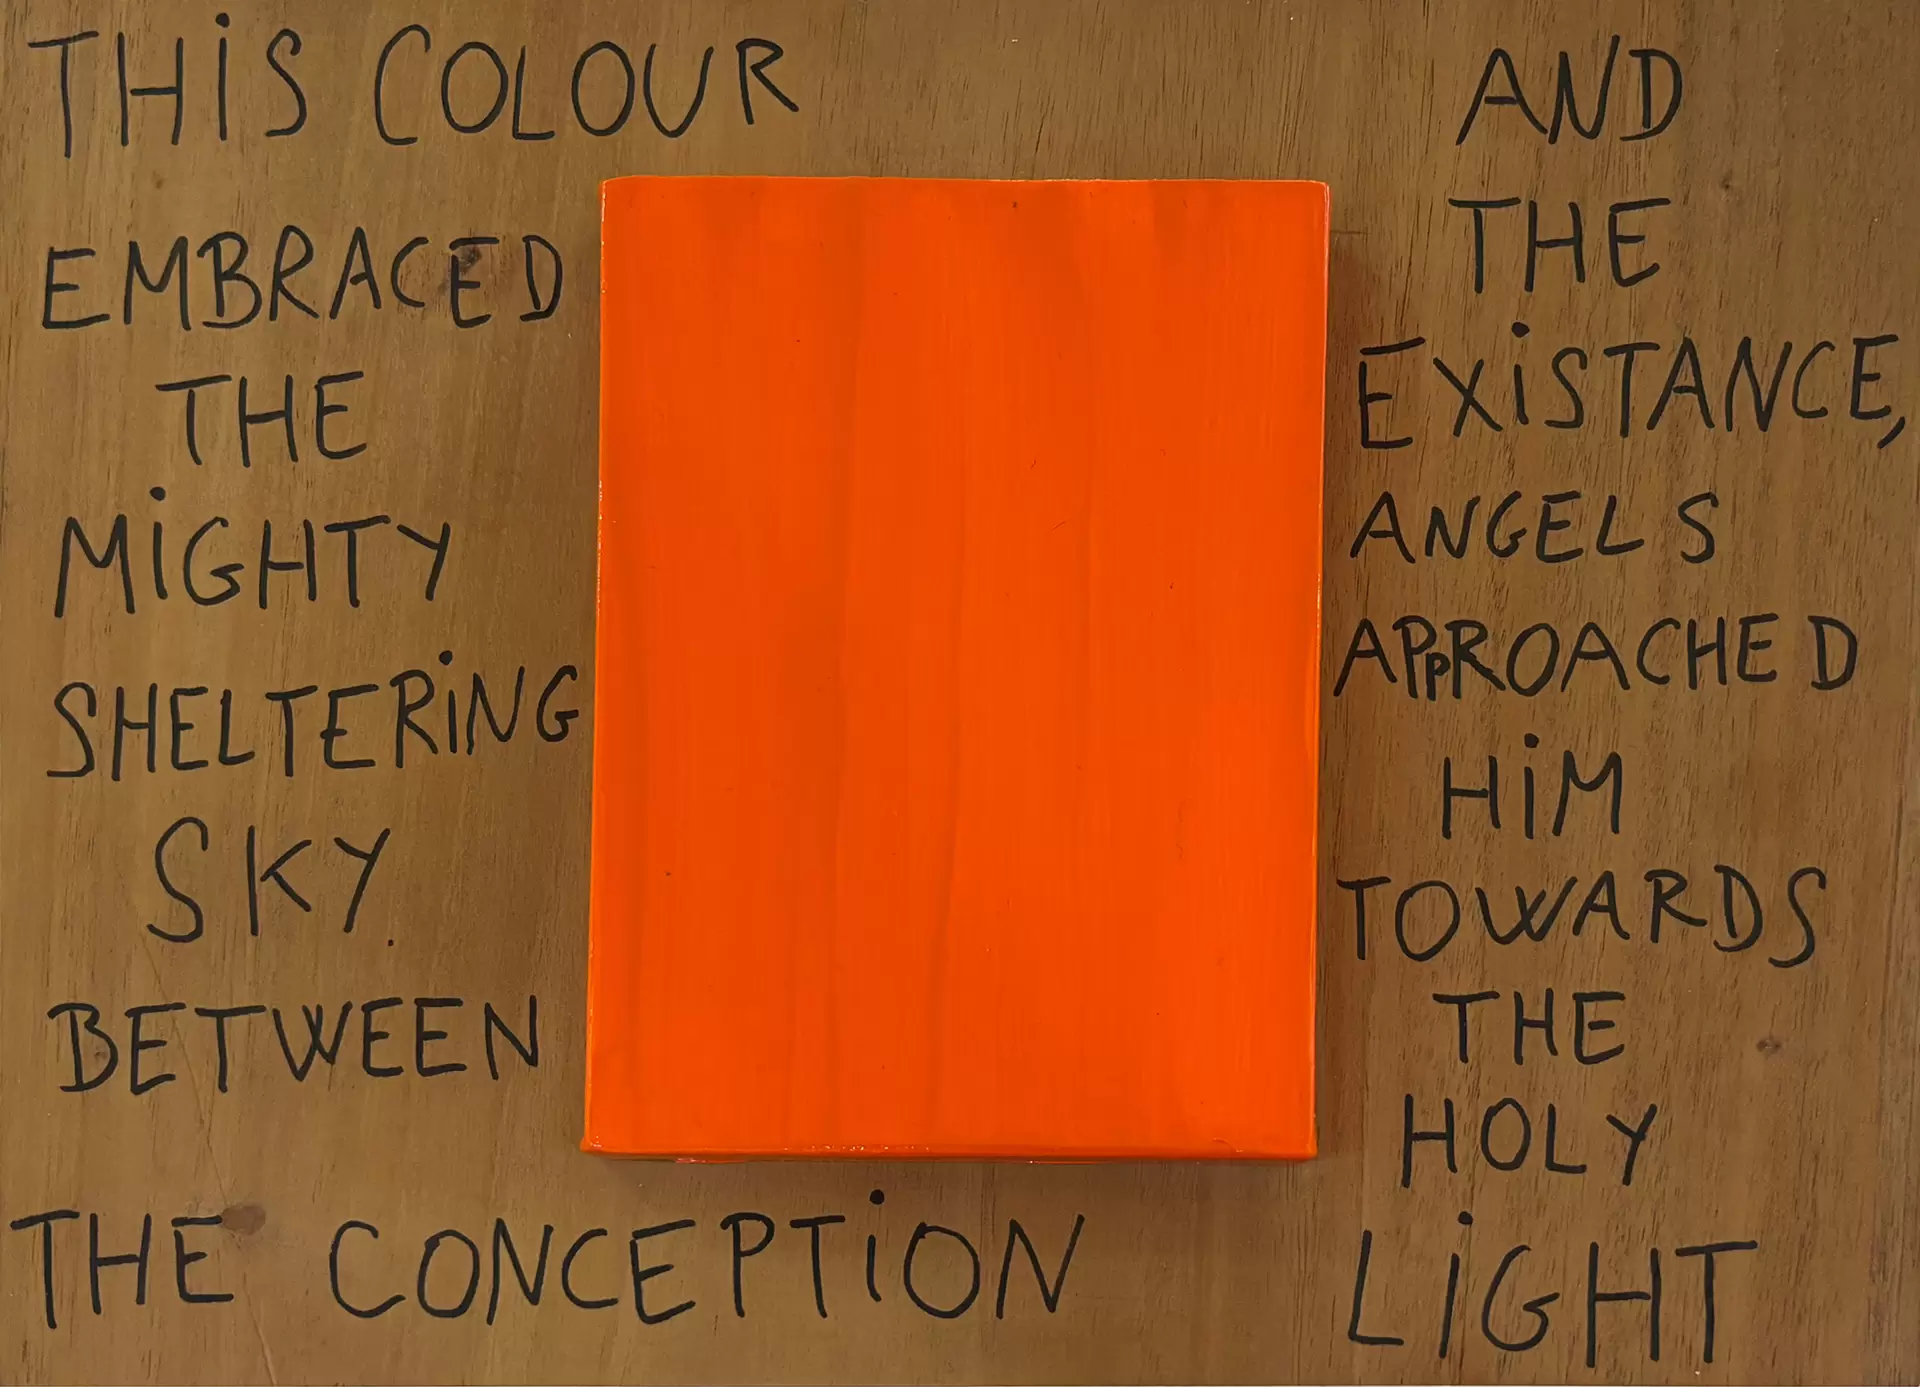 THiS COLOUR
EMBRACED
THE
MiGHTY
SHELTERiNG
SKY.
BETWEEN
THE CONCEPTiON
AND
THE
EXiSTANCE,
ANGELS
APpROACHED
HiM
TOWARDS
THE
HOLY
LiGHT